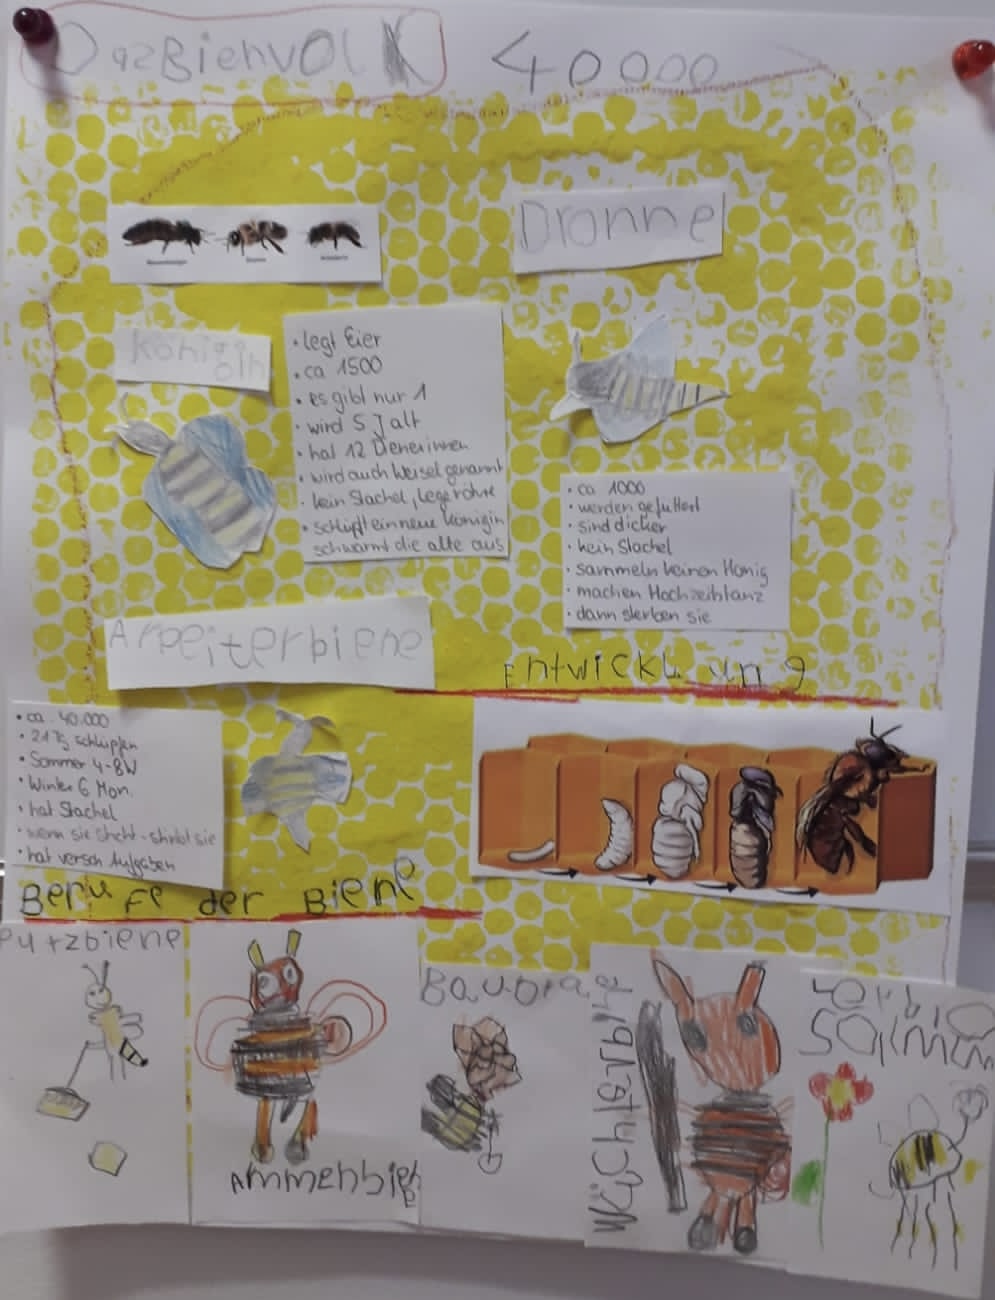 DasBienvolK 40000
Dronne
Königin
• legt Eier
• ca 1500
• es gibt nur 1
• wird 5 J alt
• hat 12 Dienerinnen
• wird auch Weisel genannt
• kein Stachel, Legeröhre
• schlüpft ein neue Königin
schwärmt die alte aus
• ca 1000
• werden gefüttert
• sind dicker
• kein Stachel
• sammeln keinen Honig
• machen Hochzeittanz
• dann sterben sie
Arpeiterbiene
Entwicklung
• ca. 40.000
• 21 Tg schlüpfen
• Sommer 4-8W
• Winter 6 Mon.
• hat Stachel
• wenn sie sticht - stirbt sie
• hat versch Aufgaben
Berufe der Biene
Putzbiene
Ammenbiene
Wächterbiene